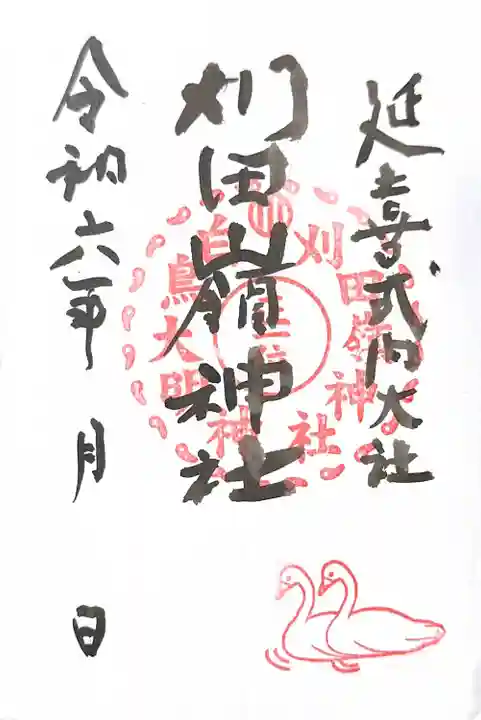 延喜式内大社
刈田嶺神社
令和六年 月 日
刈田嶺神社
白鳥大明神